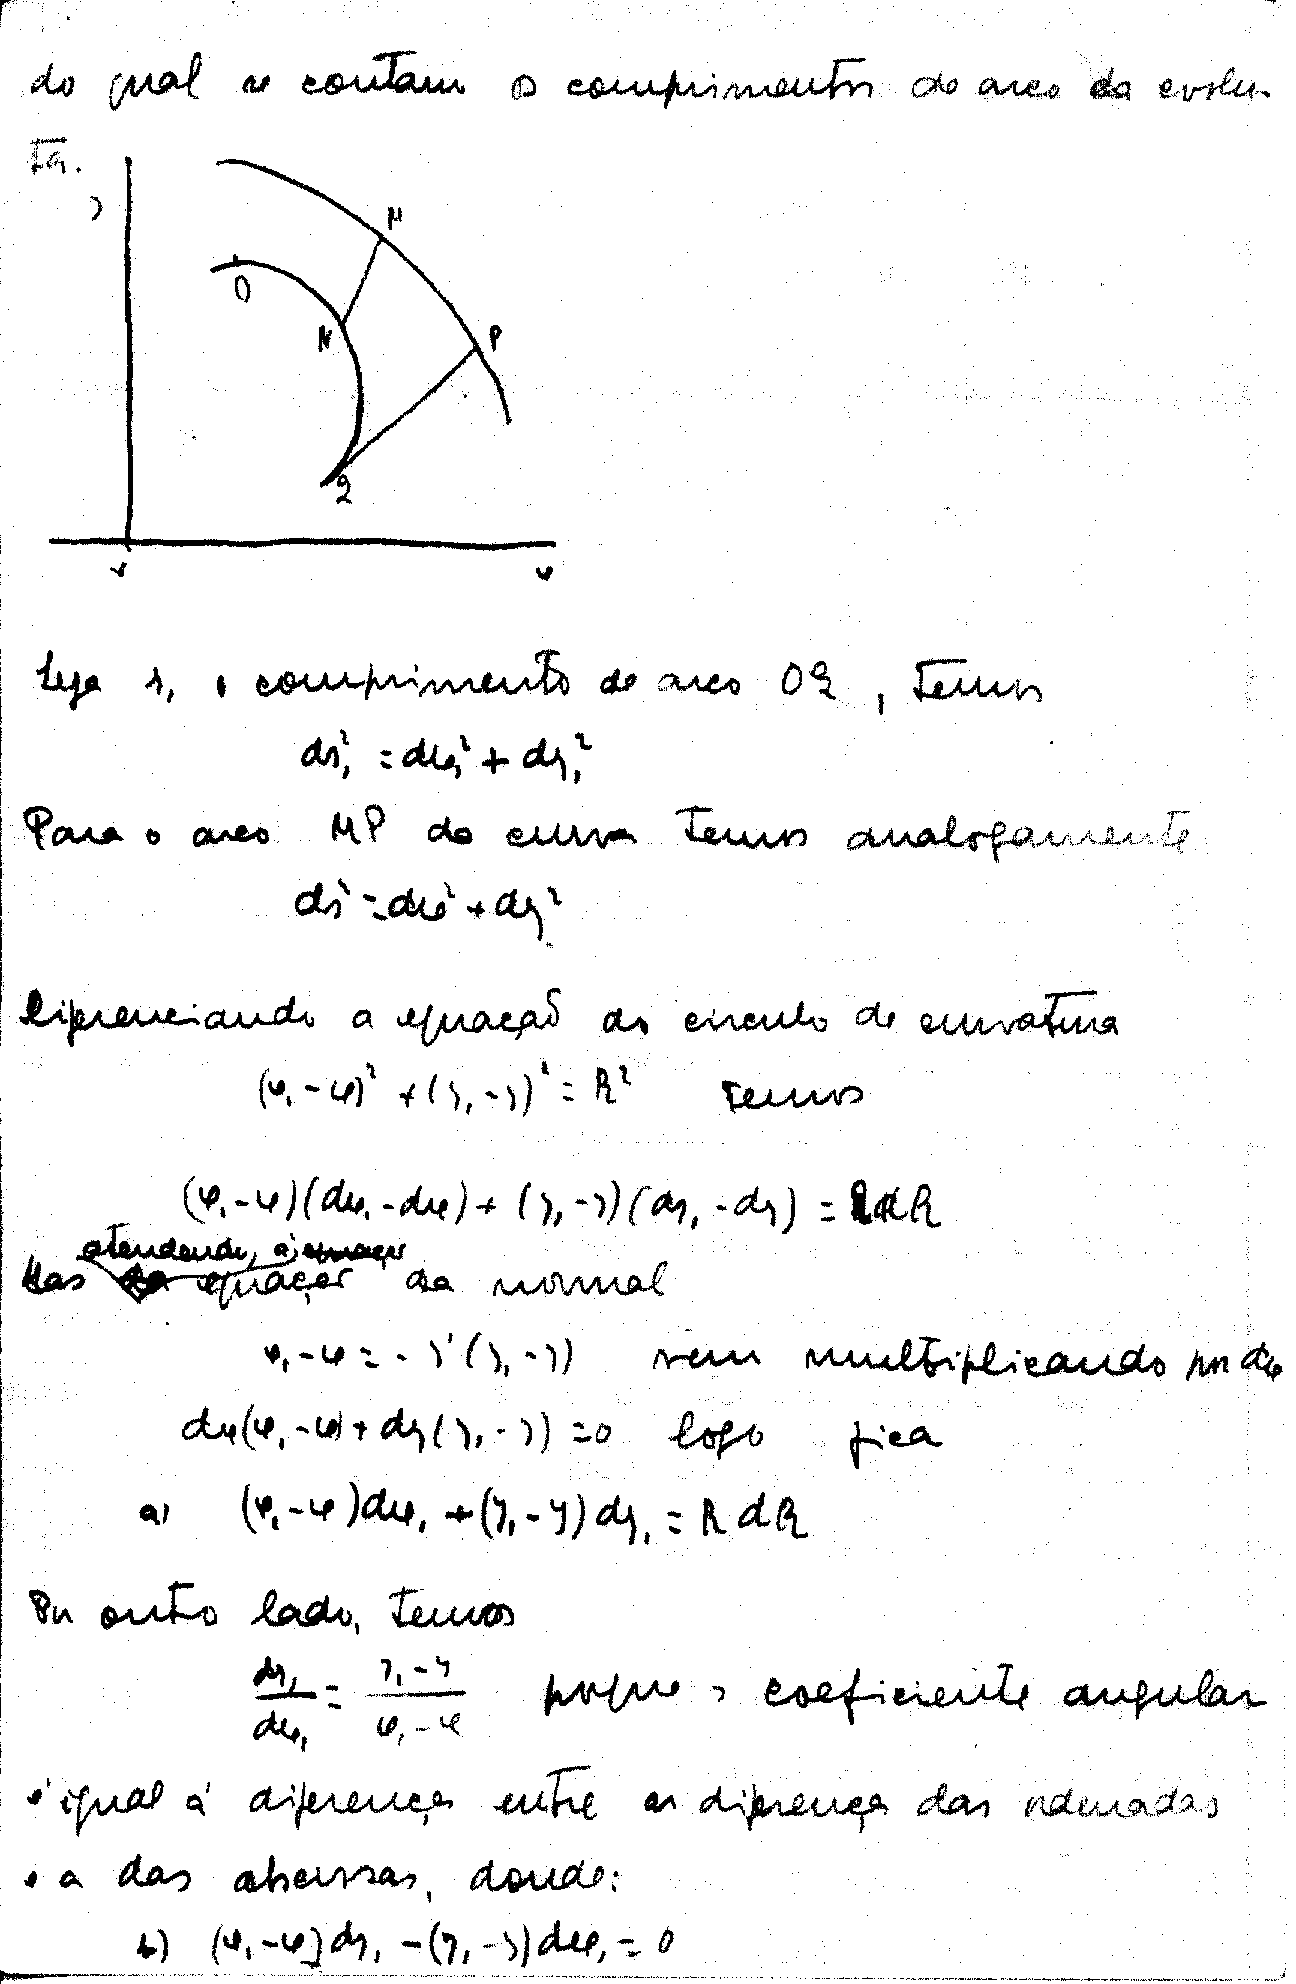 do qual se contam os comprimentos de arco da evolu-
ta.
y
M
O
N
P
Q
x
Seja s₁ o comprimento de arco OQ, temos
ds₁² = dx₁² + dy₁²
Para o arco MP da curva temos analogamente
ds² = dx² + dy²
Diferenciando a equação do circulo de curvatura
(x₁-x)² + (y₁-y)² = R² temos
(x₁-x)(dx₁-dx) + (y₁-y)(dy₁-dy) = RdR
atendendo, á
Mas equação da normal
x₁-x = -y'(y₁-y) vem multiplicando por dx
dx(x₁-x) + dy(y₁-y) = 0 logo fica
a) (x₁-x)dx₁ + (y₁-y)dy₁ = R dR
Por outro lado, temos
dy₁/dx₁ = (y₁-y)/(x₁-x) porque o coeficiente angular
é igual á diferença entre as diferença das ordenadas
e a das abcissas, donde:
b) (x₁-x]dy₁ - (y₁-y)dx₁ = 0